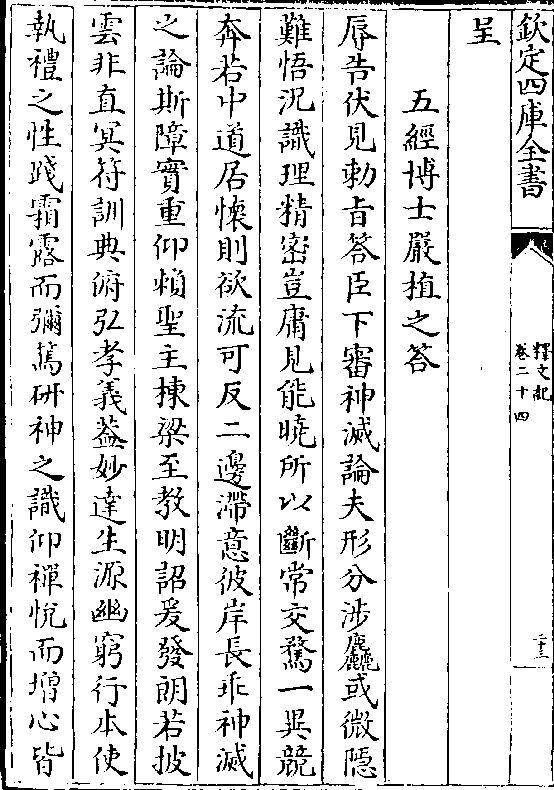 欽定四庫全書
釋文紀
卷二十四
二十三
呈
五經博士嚴植之答
辱告伏見勅旨答臣下審神滅論夫形分涉麤或微隱
難悟況識理精密豈庸見能曉所以斷常交騖一異競
奔若中道居懷則欲流可反二邊滯意彼岸長乖神滅
之論斯障實重仰賴聖主棟梁至教明詔爰發朗若披
雲非直冥符訓典俯弘孝義葢妙達生源幽窮行本使
執禮之性踐霜露而彌篤研神之識仰禪悅而增心皆